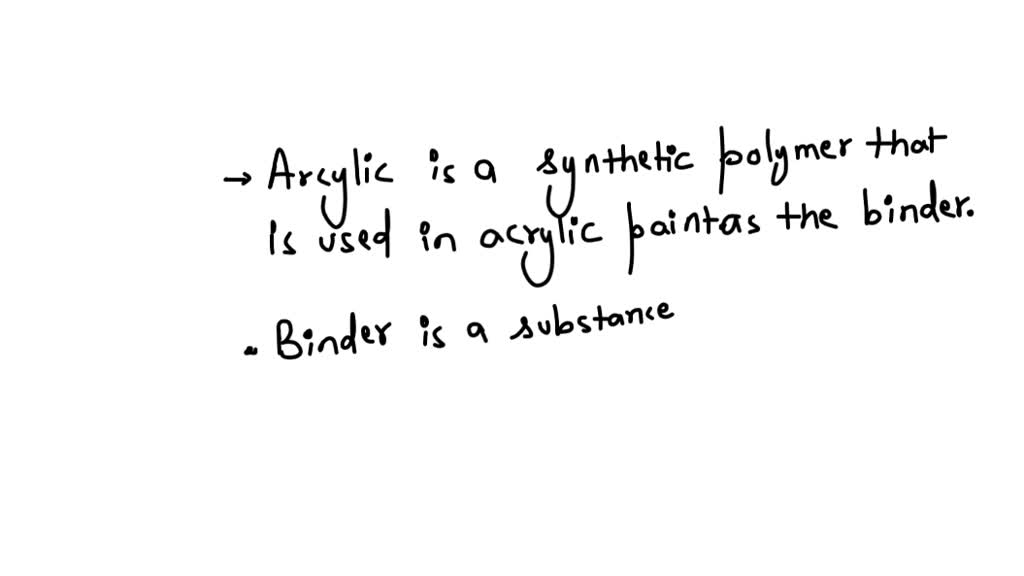 → Arcylic is a synthetic polymer that
is used in acrylic paintas the binder.
- Binder is a substance